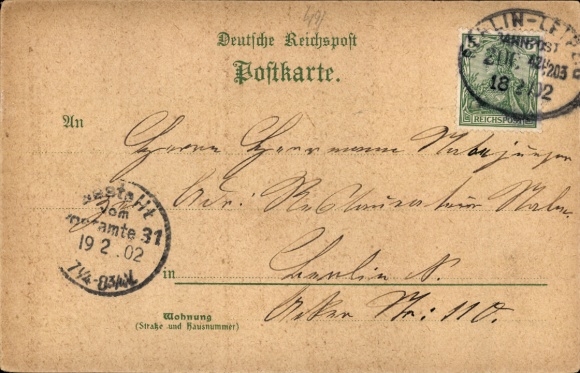 49/
Deutsche Reichspost
Postkarte.
BERLIN-
BAHNPOST
ZUG 203
18 2 02
REICHSPOST
An
Herrn Herrmann
Adr: Restaurateur
in Berlin N.
Acker Str: 110.
Wohnung
(Straße und Hausnummer)
Bestellt
vom
Postamte 31
19 2. 02
7¼-8¾N